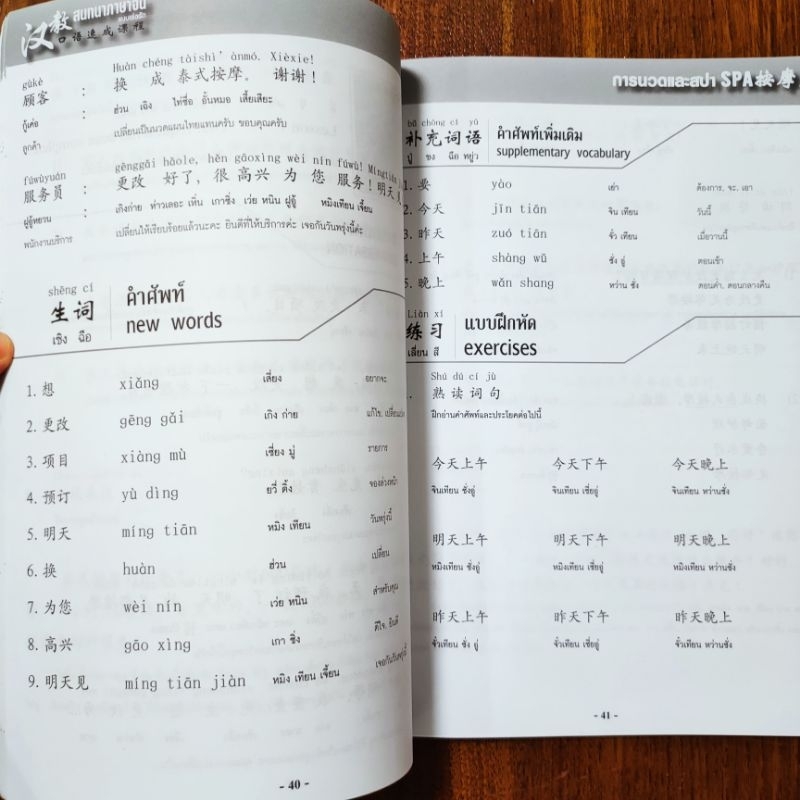 汉教 สนทนาภาษาจีน
แบบเร่งรัด
口语速成课程
Huàn chéng tàishì'ànmó. Xièxie!
gùkè
顾客 : 换 成 泰式按摩。 谢谢!
กู้เค่อ : ฮ่วน เฉิง ไท่ซื่อ อั้นหมอ เสี้ยเสียะ
ลูกค้า เปลี่ยนเป็นนวดแผนไทยแทนครับ ขอบคุณครับ
gēnggǎi hǎole, hěn gāoxìng wèi nín fúwù!
fúwùyuán
服务员 : 更改 好了, 很 高兴 为 您 服务! 明天 见
ฝูอู้หยวน : เกิงก่าย ห่าวเลอะ เหิ่น เกาซิ่ง เว่ย หนิน ฝูอู้ หมิงเทียน เจี้ยน
พนักงานบริการ เปลี่ยนให้เรียบร้อยแล้วนะคะ ยินดีที่ให้บริการค่ะ เจอกันวันพรุ่งนี้ค่ะ
shēng cí
生词 คำศัพท์
เชิง ฉือ new words
1. 想 xiǎng เสี่ยง อยากจะ
2. 更改 gēng gǎi เกิง ก่าย แก้ไข,
3. 项目 xiàng mù เซี่ยง มู่ รายการ
4. 预订 yù dìng ยวี่ ติ้ง จองล่วงหน้า
5. 明天 míng tiān หมิง เทียน วันพรุ่งนี้
6. 换 huàn ฮ่วน เปลี่ยน
7. 为您 wèi nín เว่ย หนิน สำหรับคุณ
8. 高兴 gāo xìng เกา ซิ่ง ดีใจ, ยินดี
9. 明天见 míng tiān jiàn หมิง เทียน เจี้ยน เจอกันวันพรุ่งนี้
- 40 -
การนวดและสปา SPA按摩
bǔ chōng cí yǔ
补充词语 คำศัพท์เพิ่มเติม
ปู่ ชง ฉือ หยู่ว supplementary vocabulary
1. 要 yào เย่า ต้องการ, จะ, เอา
2. 今天 jīn tiān จิน เทียน วันนี้
3. 昨天 zuó tiān จั๋ว เทียน เมื่อวานนี้
4. 上午 shàng wǔ ซั่ง อู่ ตอนเช้า
5. 晚上 wǎn shang หว่าน ซั่ง ตอนค่ำ, ตอนกลางคืน
Liàn xí
练习 แบบฝึกหัด
เลี่ยน สี exercises
Shú dú cí jù
熟读词句
ฝึกอ่านคำศัพท์และประโยคต่อไปนี้
今天上午 今天下午 今天晚上
จินเทียน ซั่งอู่ จินเทียน เซี่ยอู่ จินเทียน หว่านซั่ง
明天上午 明天下午 明天晚上
หมิงเทียน ซั่งอู่ หมิงเทียน เซี่ยอู่ หมิงเทียน หว่านซั่ง
昨天上午 昨天下午 昨天晚上
จั๋วเทียน ซั่ง อู่ จั๋วเทียน เซี่ยอู่ จั๋วเทียน หว่านซั่ง
- 41 -